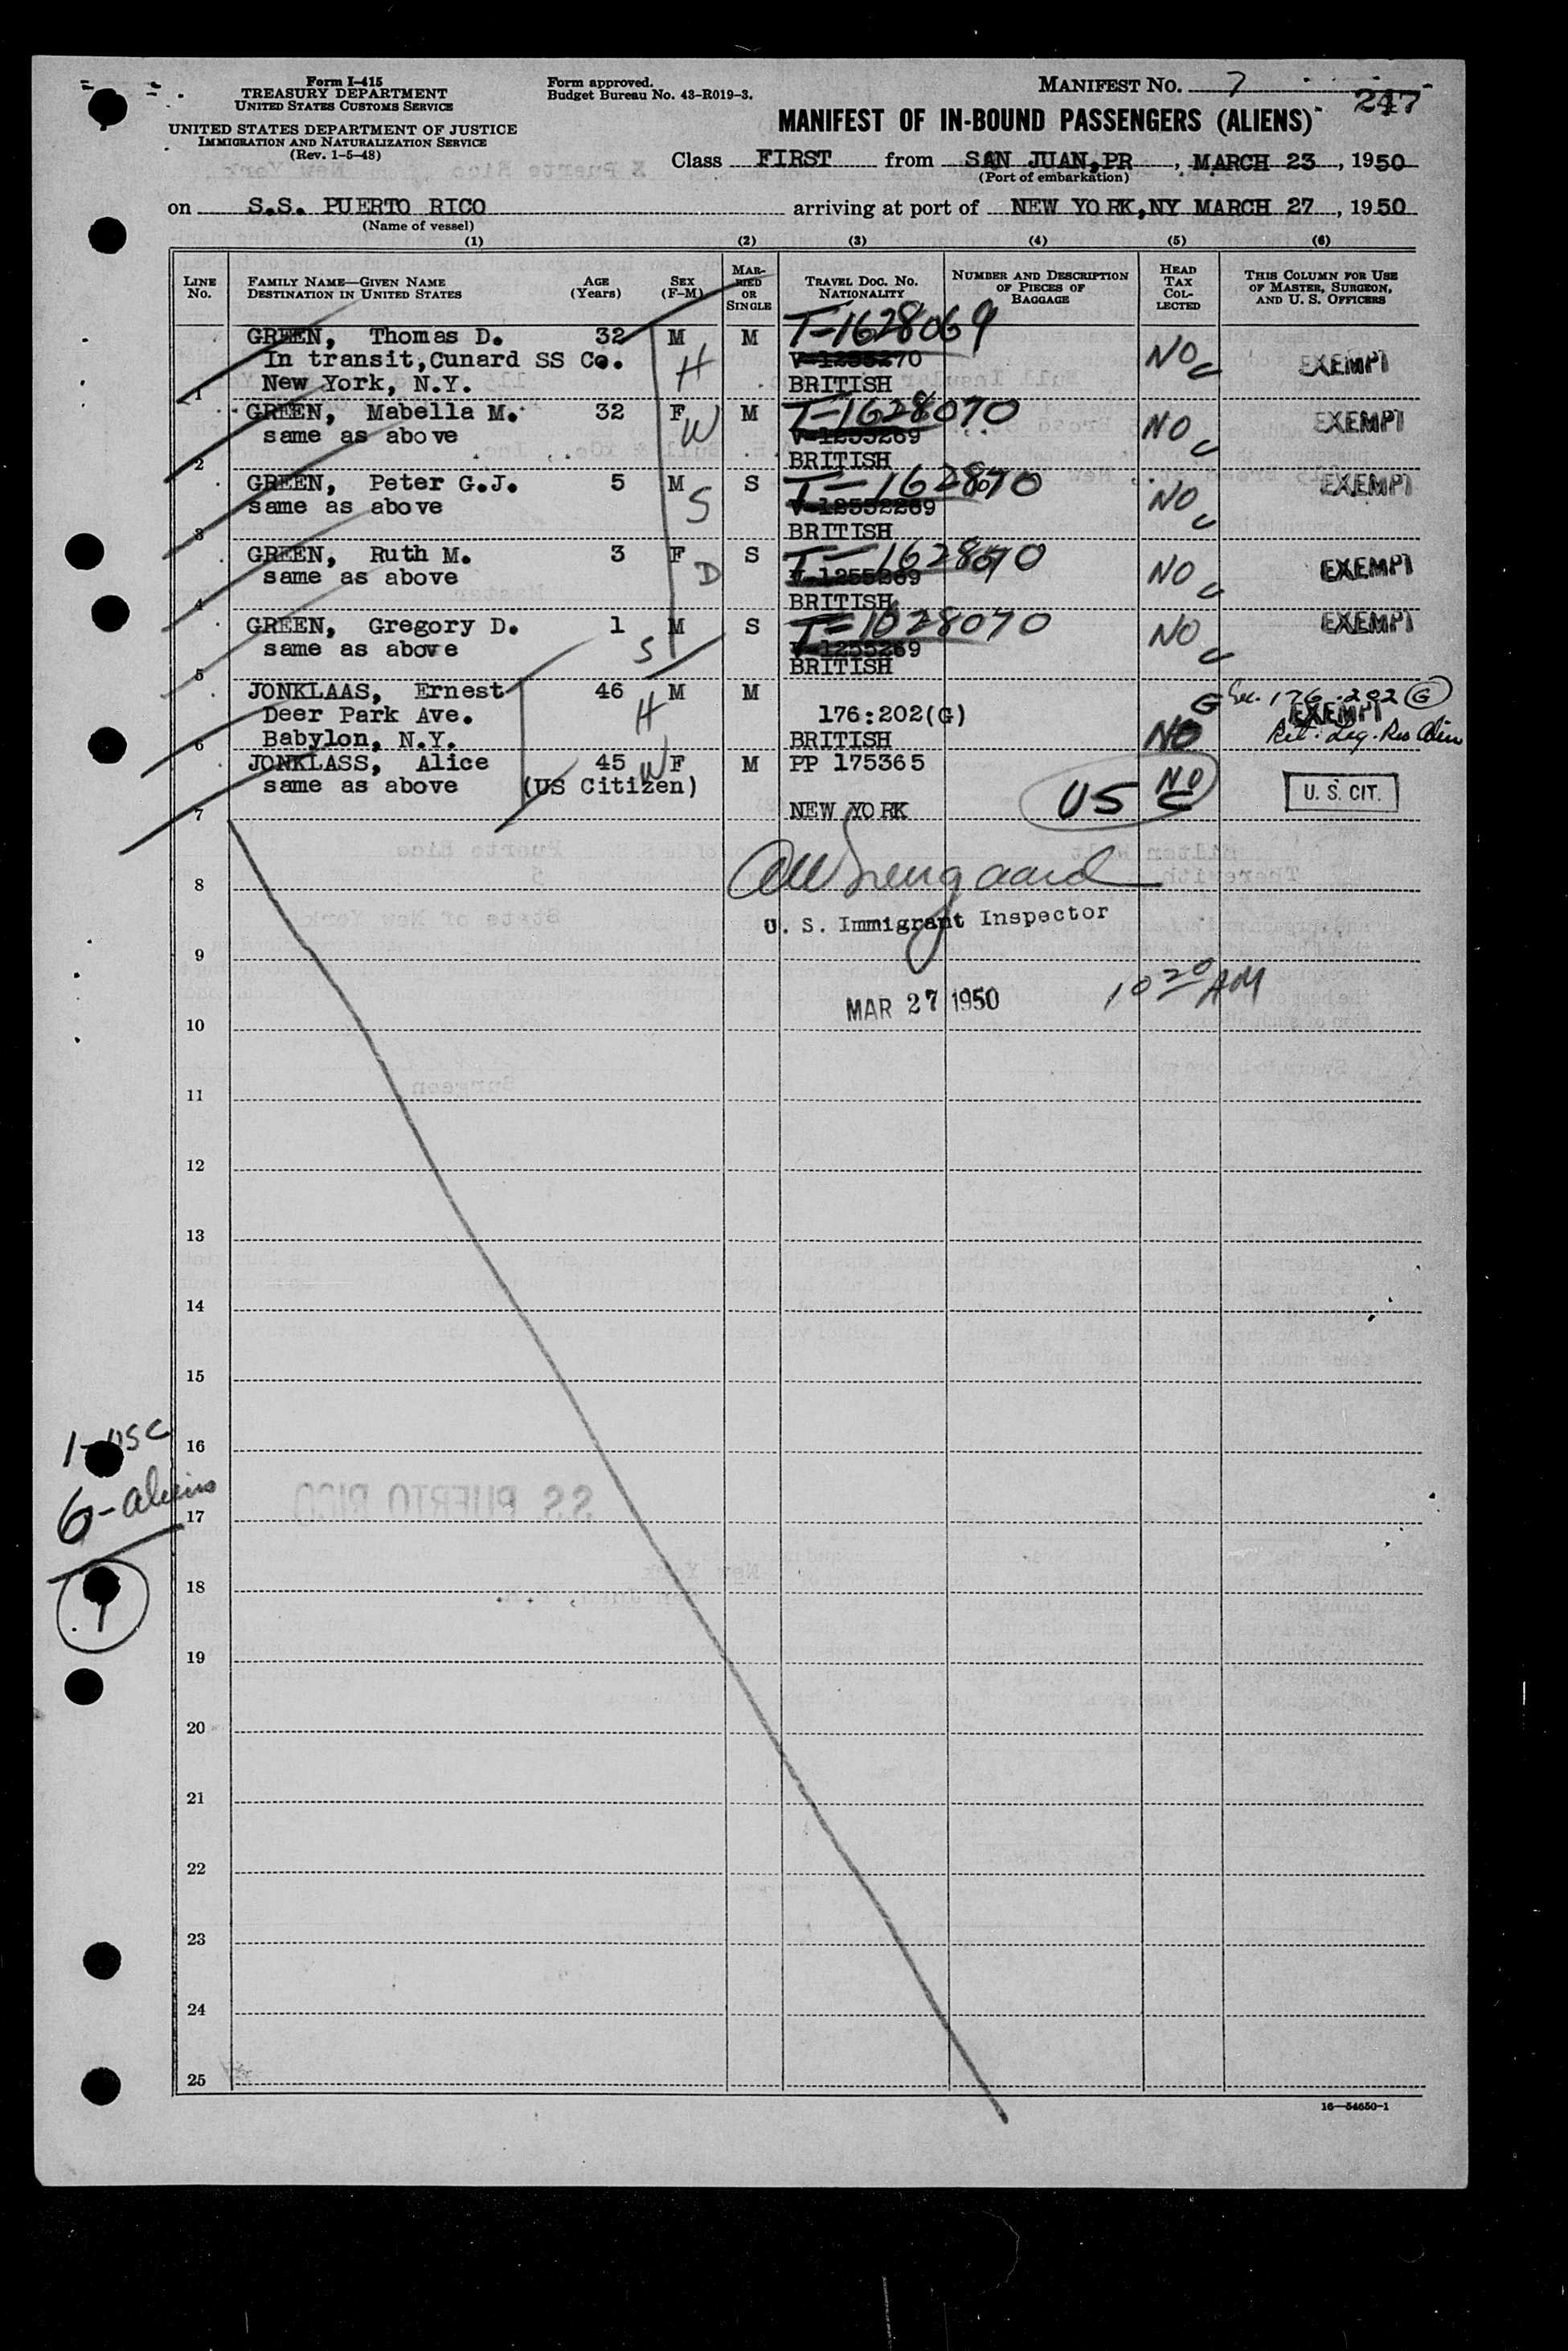 Form I-415
TREASURY DEPARTMENT
UNITED STATES CUSTOMS SERVICE
UNITED STATES DEPARTMENT OF JUSTICE
IMMIGRATION AND NATURALIZATION SERVICE
(Rev. 1-5-48)
Form approved.
Budget Bureau No. 43-R019-3.
MANIFEST NO. 7
247
MANIFEST OF IN-BOUND PASSENGERS (ALIENS)
Class FIRST from SAN JUAN, PR, MARCH 23, 1950
(Port of embarkation)
on S.S. PUERTO RICO arriving at port of NEW YORK, NY MARCH 27, 1950
(Name of vessel)
(1) (2) (3) (4) (5) (6)
LINE No. FAMILY NAME—GIVEN NAME DESTINATION IN UNITED STATES AGE (Years) SEX (F-M) MARRIED OR SINGLE TRAVEL DOC. NO. NATIONALITY NUMBER AND DESCRIPTION OF PIECES OF BAGGAGE HEAD TAX COLLECTED THIS COLUMN FOR USE OF MASTER, SURGEON, AND U. S. OFFICERS
GREEN, Thomas D. 32 M M T-1628069
In transit, Cunard SS Co. H V-1255270 NO C EXEMPT
1 New York, N.Y. BRITISH
GREEN, Mabella M. 32 F M T-1628070
same as above W V-1255269 NO C EXEMPT
2 BRITISH
GREEN, Peter G.J. 5 M S T-1628070
same as above S V-12552269 NO C EXEMPT
3 BRITISH
GREEN, Ruth M. 3 F S T-1628070
same as above D V-1255269 NO C EXEMPT
4 BRITISH
GREEN, Gregory D. 1 M S T-1628070
same as above S V-1255269 NO C EXEMPT
5 BRITISH
JONKLAAS, Ernest 46 M M G Sec. 176.202 G
Deer Park Ave. H 176:202(G) EXEMPT
6 Babylon, N.Y. BRITISH NO Ret. Leg. Res Alien
JONKLASS, Alice 45 W F M PP 175365
same as above (US Citizen) US NO C U. S. CIT.
7 NEW YORK
8
U. S. Immigrant Inspector
9
MAR 27 1950 10 20 AM
10
11
12
13
14
15
1-USC
16
6-aliens
17
SS PUERTO RICO
18
New York
19
20
21
22
23
24
25
16—54650-1